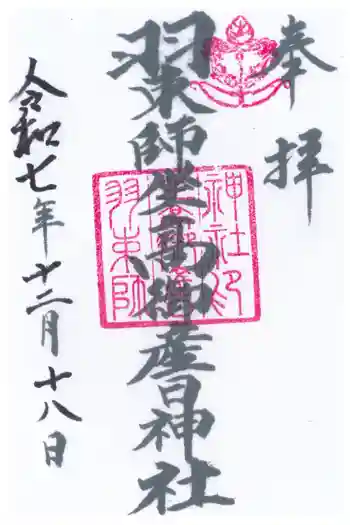 奉拝
羽束師坐高御産日神社
令和七年十二月十八日
神社印
羽束師